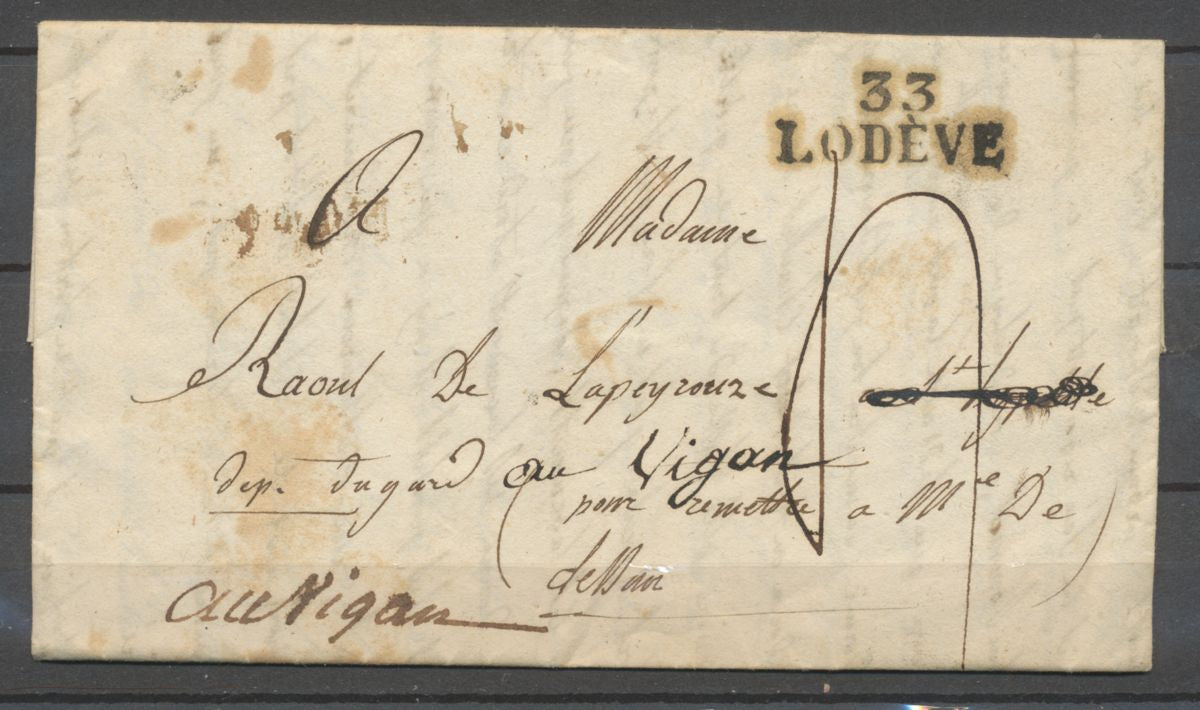 33
LODÈVE
A Madame
Raoul De Lapeyrouze a
dep. du gard au Vigan
(pour remettre a Mme De
au Vigan